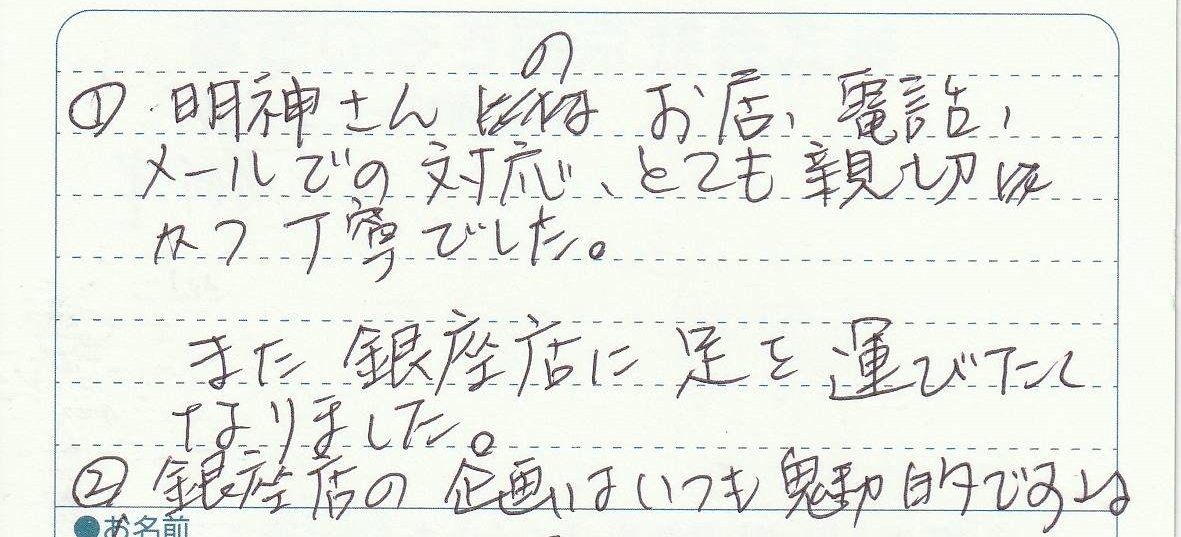 ① 明神さんの お店、電話、
メールでの 対応、とても 親切
かつ 丁寧でした。
また 銀座店に 足を 運びたく
なりました。
② 銀座店の 企画はいつも 魅力的ですよ
●お名前